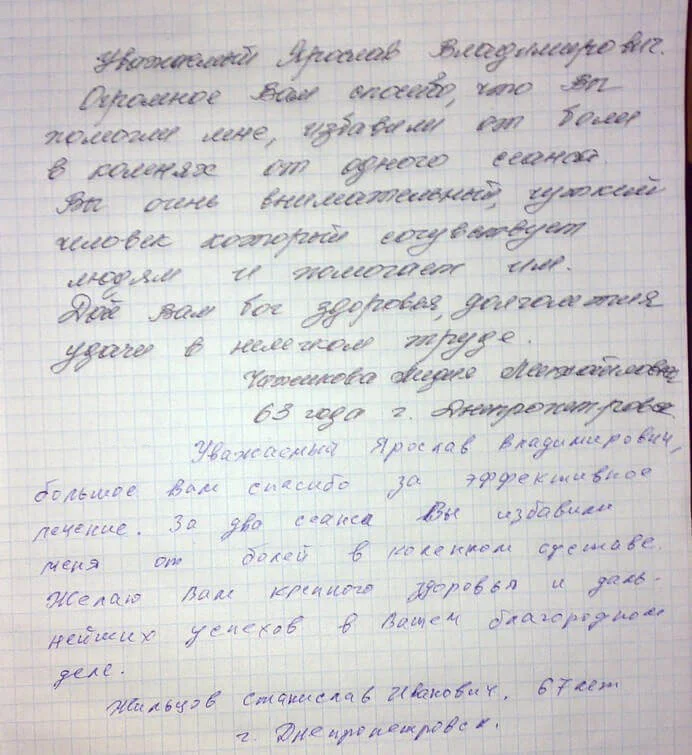 Уважаемый Ярослав Владимирович.
Огромное Вам спасибо, что Вы
помогли мне, избавили от боли
в коленях от одного сеанса.
Вы очень внимательный, чуткий
человек который сочувствует
людям и помогает им.
Дай Вам бог здоровья, долголетия
удачи в нелегком труде.
Лидия Михайловна
63 года г. Днепропетровск
Уважаемый Ярослав Владимирович,
большое Вам спасибо за эффективное
лечение. За два сеанса Вы избавили
меня от болей в коленном суставе.
Желаю Вам крепкого здоровья и даль-
нейших успехов в Вашем благородном
деле.
Жильцов Станислав Иванович. 67 лет
г. Днепропетровск.